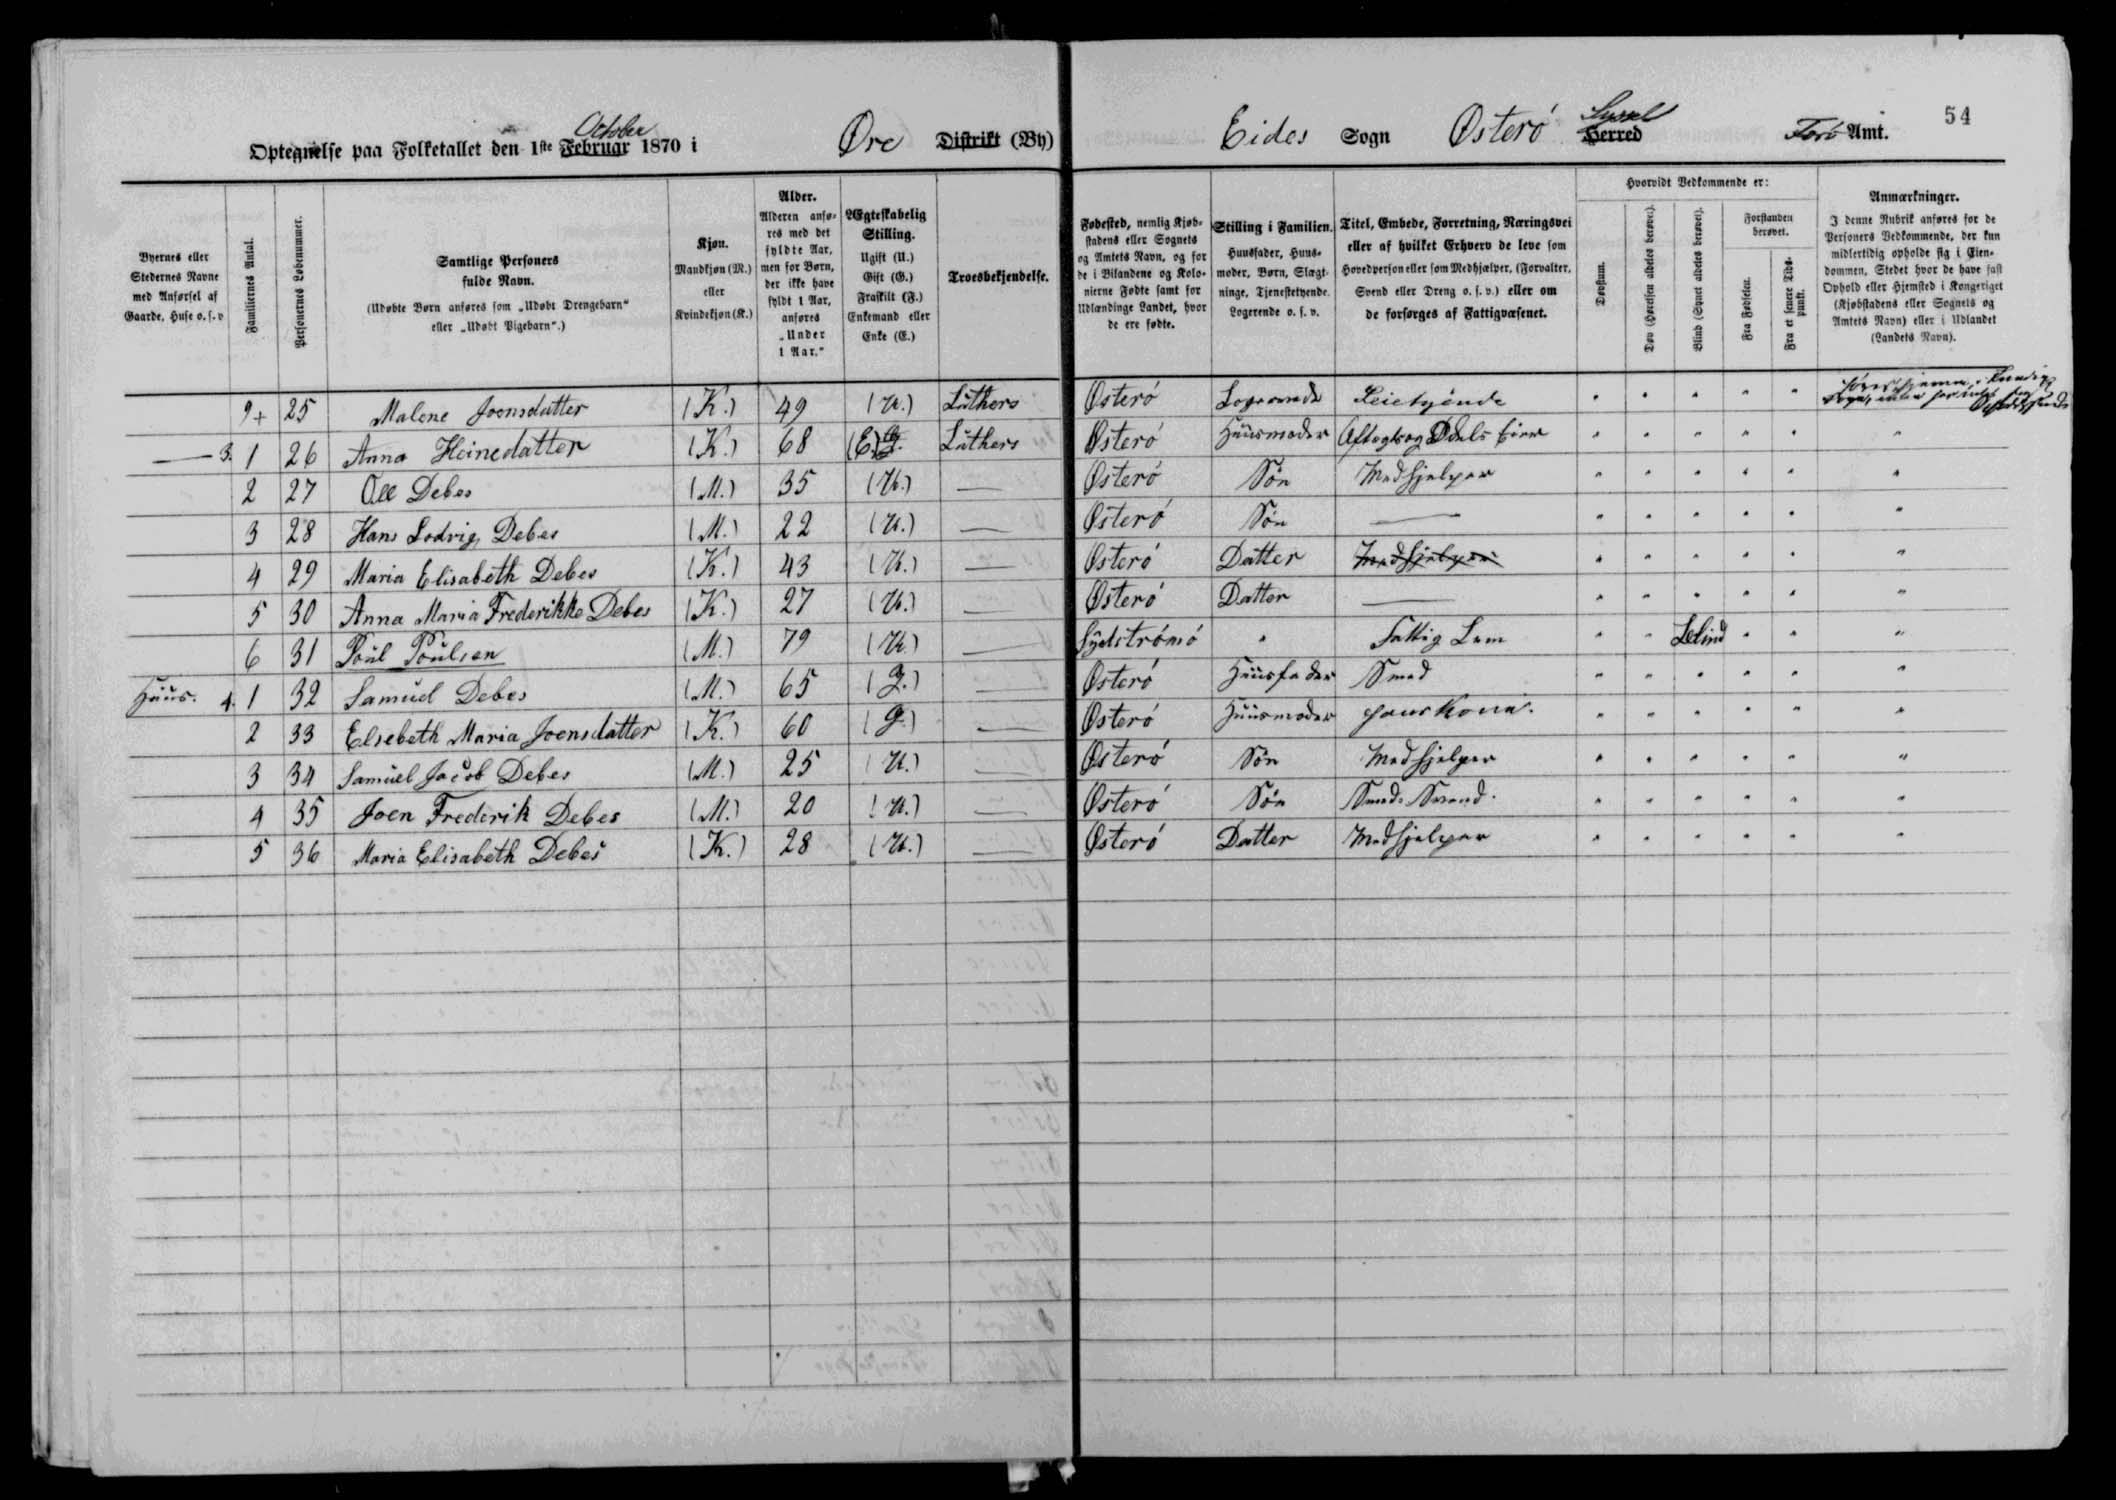 54
October
Syssel
Optegnelse paa Folketallet den 1ste Februar 1870 i Øre Distrikt (By) Eides Sogn Østerö Herred Ferö Amt.
Byernes eller Stedernes Navne med Anførsel af Gaarde, Huse o. s. v
Familiernes Antal.
Personernes Løbenummer.
Samtlige Personers fulde Navn.
(Udøbte Børn anføres som „Udøbt Drengebarn“ eller „Udøbt Pigebarn“.)
Kjøn.
Mandkjøn (M.) eller Kvindekjøn (K.)
Alder.
Alderen anføres med det fyldte Aar, men for Børn, der ikke have fyldt 1 Aar, anføres „Under 1 Aar.“
Ægteskabelig Stilling.
Ugift (U.) Gift (G.) Fraskilt (F.) Enkemand eller Enke (E.)
Troesbekjendelse.
Fødested, nemlig Kjøbstadens eller Sognets og Amtets Navn, og for de i Bilandene og Kolonierne Fødte samt for Udlændinge Landet, hvor de ere fødte.
Stilling i Familien.
Huusfader, Huusmoder, Børn, Slægtninge, Tjenestetyende. Logerende o. s. v.
Titel, Embede, Forretning, Næringsvei eller af hvilket Erhverv de leve som Hovedperson eller som Medhjælper, (Forvalter, Svend eller Dreng o. s. v.) eller om de forsørges af Fattigvæsenet.
Hvorvidt Vedkommende er:
Døvstum.
Døv (Hørelsen aldeles berøvet).
Blind (Synet aldeles berøvet).
Forstanden berøvet.
Fra Fødselen.
Fra et senere Tidspunkt.
Anmærkninger.
I denne Rubrik anføres for de Personers Vedkommende, der kun midlertidig opholde sig i Eiendommen, Stedet hvor de have fast Ophold eller Hjemsted i Kongeriget (Kjøbstadens eller Sognets og Amtets Navn) eller i Udlandet (Landets Navn).
9+ 25 Malene Joensdatter (K.) 49 (U.) Lüthers Østerö Leietyende " " " " "
— 3. 1 26 Anna Heinedatter (K.) 68 (E.) G. Lüthers Østerö Huusmoder Aftægts og Odels Eier " " " " " "
2 27 Ole Debes (M.) 35 (U.) — Østerö Søn Medhjelper " " " " " "
3 28 Hans Lodvig Debes (M.) 22 (U.) — Østerö Søn — " " " " " "
4 29 Maria Elisabeth Debes (K.) 43 (U.) — Østerö Datter Medhjelper " " " " " "
5 30 Anna Maria Frederikke Debes (K.) 27 (U.) — Østerö Datter — " " " " " "
6 31 Poül Poülsen (M.) 79 (U.) — Sydströmö " Fattig Lem " " Blind " " "
Huus. 4. 1 32 Samüel Debes (M.) 65 (G.) — Østerö Huusfader Smed " " " " " "
2 33 Elsebeth Maria Joensdatter (K.) 60 (G.) — Østerö Huusmoder hans Kone. " " " " " "
3 34 Samüel Jacob Debes (M.) 25 (U.) — Østerö Søn Medhjelper " " " " " "
4 35 Joen Frederik Debes (M.) 20 (U.) — Østerö Søn Smede Svend. " " " " " "
5 36 Maria Elisabeth Debes (K.) 28 (U.) — Østerö Datter Medhjelper " " " " " "